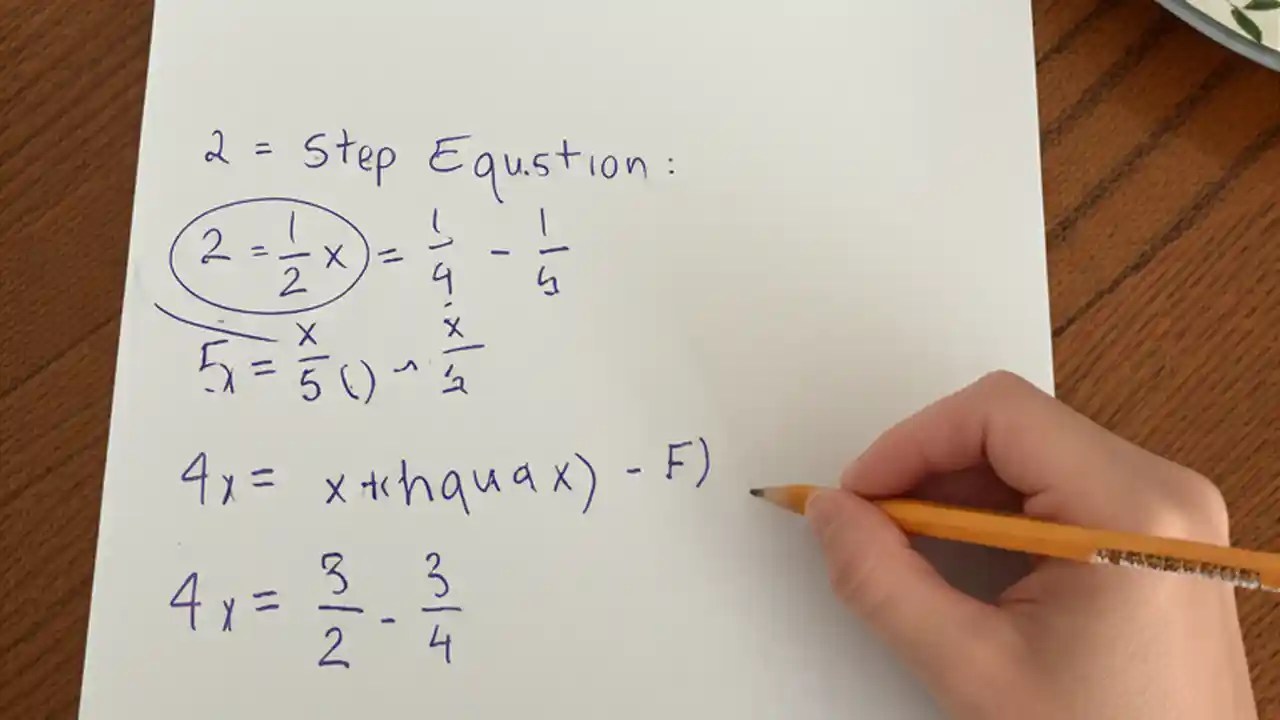 2 = Step Equstion:
2 = 1/2 x = 1/4 - 1/5
5x = x/5 () - x/5
4x = x+hquax) - F)
4x = 3/2 - 3/4